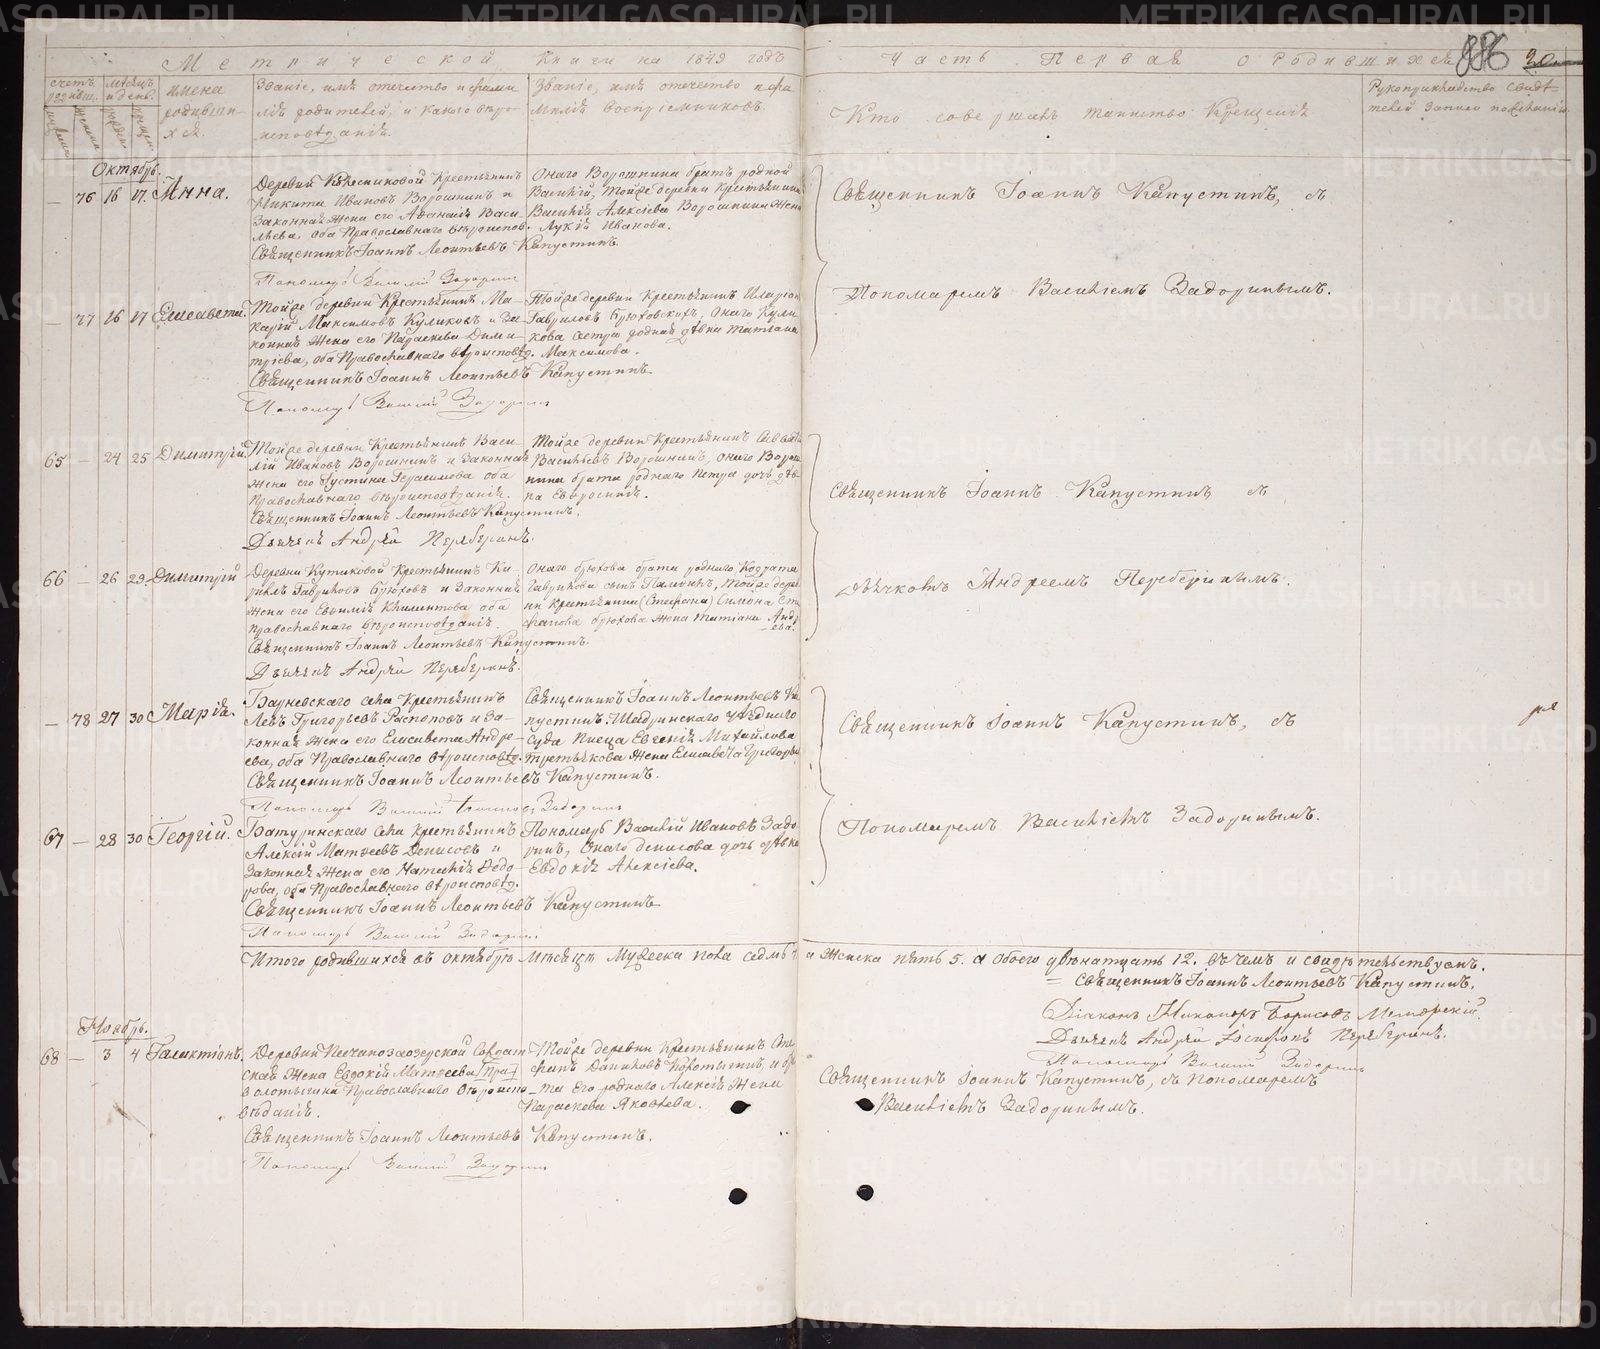 Метрической Книги на 1849 годъ
Часть Первая о Родившихся
886
счетъ родивш.
мѣсяцъ и день.
имена родивших ся.
Званіе, имя отчество и фами
лія родителей, и какого вѣро-
исповѣданія.
Званіе, имя отчество и фа
милія воспріемниковъ.
Кто совершалъ таинство Крещенія
Рукоприкладство свидѣ
телей записи по желанію
Октябрь.
— 76 16 17. Анна.
Деревни Колесниковой Крестьянинъ
Никита Ивановъ Ворошнинъ и
Законная жена его Афанасія Васи
льева, оба Православнаго вѣроиспов.
Священникъ Іоаннъ Леонтьевъ Капустинъ.
Пономарь Василій Задоринъ
Онаго Ворошнина братъ родной
Василій, Тойже деревни крестьянина
Василія Алексіева Ворошнина жена
Лукія Иванова.
Священникъ Іоаннъ Капустинъ, съ
Пономаремъ Василіемъ Задоринымъ.
— 77 16 17 Елисавета.
Тойже деревни Крестьянинъ Ма-
карій Максимовъ Куликовъ и За-
конная жена его Параскева Дими-
тріева, оба Православнаго вѣроисповѣд.
Священникъ Іоаннъ Леонтьевъ Капустинъ.
Пономарь Василій Задоринъ
Тойже деревни Крестьянинъ Иларіон
Гавриловъ Брюховскихъ, Онаго Кули
кова сестра родная дѣвка Татіана
Максимова.
65 — 24 25 Димитрій.
Тойже деревни Крестьянинъ Васи-
лій Ивановъ Ворошнинъ и Законная
жена его Іустина Герасимова оба
Православнаго вѣроисповѣданія.
Священникъ Іоаннъ Леонтьевъ Капустинъ.
Дьячекъ Андрей
Тойже деревни Крестьянинъ
Васильевъ Ворошнинъ, онаго Ворош
нина брата роднаго Петра дочь дѣв-
ка Евфросинія.
Священникъ Іоаннъ Капустинъ съ
дьячкомъ Андреемъ
66 — 26 29. Димитрій
Деревни Кутиковой Крестьянинъ Ки-
риллъ Гавриловъ Брюховъ и Законная
жена его Евфимія Климентова оба
православнаго вѣроисповѣданія.
Священникъ Іоаннъ Леонтьевъ Капустинъ.
Дьячекъ Андрей
Онаго Брюхова брата роднаго Кодрата
Гаврилова сынъ тойже дерев
ни крестьянина (Стефана) Симона Сте
фанова Брюхова жена Татіана Андре
ева.
— 78 27 30 Марія.
села Крестьянинъ
Левъ Григорьевъ Распоповъ и За-
конная жена его Елисавета Андре-
ева, оба Православнаго вѣроисповѣд.
Священникъ Іоаннъ Леонтьевъ Капустинъ.
Пономарь Василій Задоринъ
Священникъ Іоаннъ Леонтьевъ Ка
пустинъ. Шадринскаго уѣзднаго
суда писца Евгенія Михайлова
Третьякова жена Елисавета Григорьев
Священникъ Іоаннъ Капустинъ, съ
Пономаремъ Василіемъ Задоринымъ.
67 — 28 30 Георгій.
Батуринскаго села Крестьянинъ
Алексій Матвеевъ Денисовъ и
Законная жена его Наталія Ѳедо-
рова, оба Православнаго вѣроисповѣд.
Священникъ Іоаннъ Леонтьевъ Капустинъ
Пономарь Василій Задоринъ
Пономарь Василій Ивановъ Задо-
ринъ, Онаго Денисова дочь дѣвка
Евдокія Алексіева.
Итого родившихся въ октябрѣ мѣсяцѣ Мужеска пола седмь 7 а Женска пять 5. а обоего двѣнатцать 12. въ чемъ и свидѣтельствуемъ.
Священникъ Іоаннъ Леонтьевъ Капустинъ.
Діаконъ Никаноръ Борисовъ
Дьячекъ Андрей
Пономарь Василій Задоринъ
Ноябрь.
68 — 3 4 Галактіонъ.
Деревни Песчанозаозерской Солдат-
ская жена Евдокія Матвеева
Золотыгина Православнаго вѣроиспо-
вѣданія.
Священникъ Іоаннъ Леонтьевъ Капустинъ.
Пономарь Василій Задоринъ
Тойже деревни Крестьянинъ Сте
фанъ Даниловъ и бра
та его роднаго Алексія жена
Параскева Яковлева.
Священникъ Іоаннъ Капустинъ, съ пономаремъ
Василіемъ Задоринымъ.
METRIKI.GASO-URAL.RU